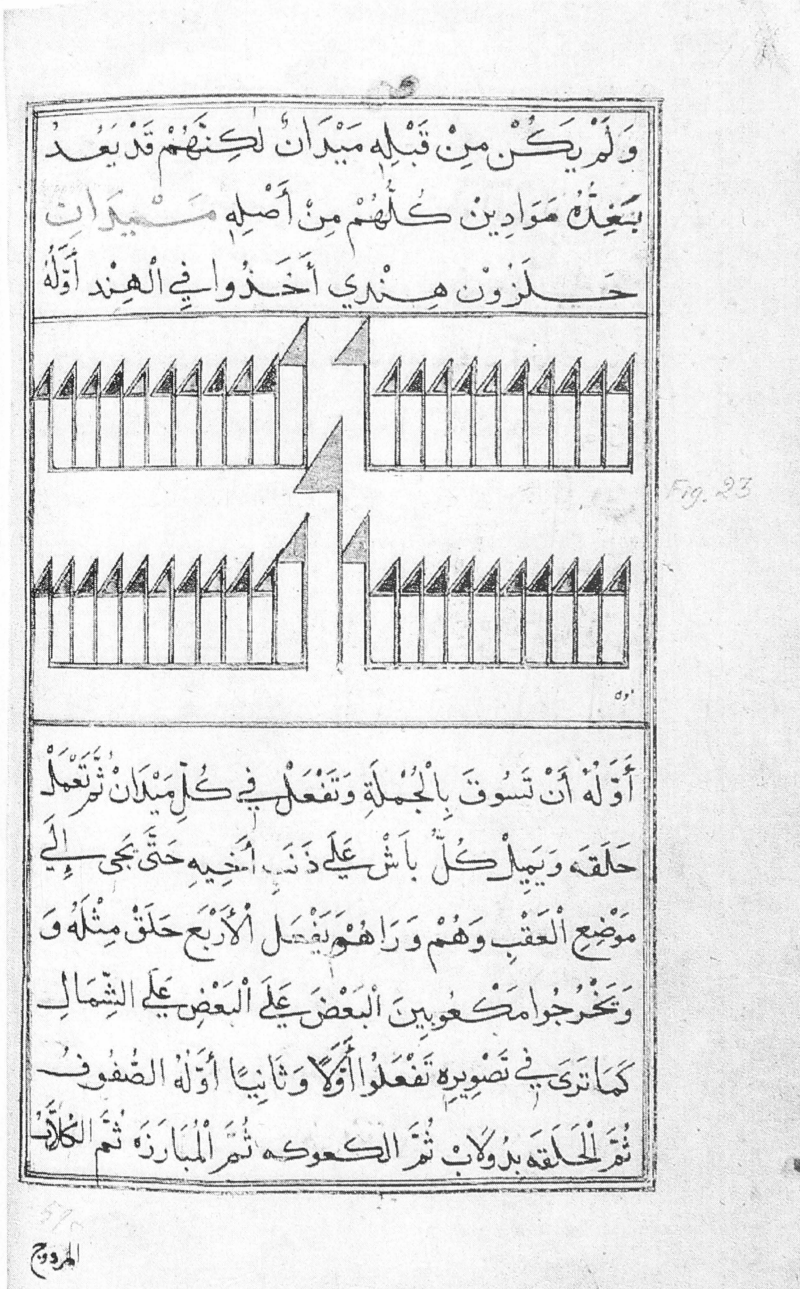 وَلَمْ يَكُنْ مِنْ قَبْلِهِ مَيْدَانٌ لٰكِنَّهُمْ قَدْ يَعُدُ
بَعْدُهُ مَوَادِينْ كُلُّهُمْ مِنْ أَصْلِهِ مَيْدَانِ
حَلَزُونْ هِنْدِي أَخَذُوا فِي الْهِنْدِ أَوَّلُهُ
Fig. 23
أَوَّلُهُ أَنْ تَسُوقَ بِالْجُمْلَةِ وَتَفْعَلْ فِي كُلِّ مَيْدَانْ ثُمَّ تَعْمَلْ
حَلَقه وَيَمِيلْ كُلُّ بَاشْ عَلَى ذَنَبِ أَخِيهِ حَتَّى يَجِى إِلَي
مَوْضِعِ الْعَقْبِ وَهُمْ وَرَاهُمْ يَفْعَل الْأَرْبَعَ حَلَقْ مِثْلَهُ وَ
وَيَخْرُجُوا مَكْعُوبِينَ الْبَعْضَ عَلَى الْبَعْضِ عَلَى الشِّمَالِ
كَمَا تَرَى فِي تَصْوِيرِهِ تَفْعَلُوا أَوَّلًا وَثَانِيًا أَوَّلُهُ الصُّفُوفُ
ثُمَّ الْحَلَقَه بِدُولَابْ ثُمَّ الكعوكه ثُمَّ الْمُبَارَزَه ثُمَّ الكُلَّابْ
59